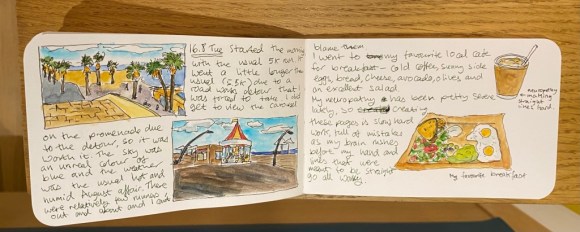 16.8 Tue Started the morning
with the usual 5K run. It
went a little longer than
usual (5.5K) due to a
road works detour that I
was forced to take. I did
get to view the carousel
on the promenade due
to the detour, so it was
worth it. The sky was
an unreal colour of
blue and the weather
was the usual hot and
humid August affair. There
were relatively few runners
out and about and I can't
blame them
I went to my favourite local cafe
for breakfast - cold coffee, sunny side
eggs, bread, cheese, avocado, olives and
an excellent salad.
My neuropathy has been pretty severe
lately, so creating
these pages is slow, hard
work, full of mistakes
as my brain rushes
before my hand and
lines that were
meant to be straight
go all wobbly.
neuropathy
is making
straight
lines hard
my favourite breakfast